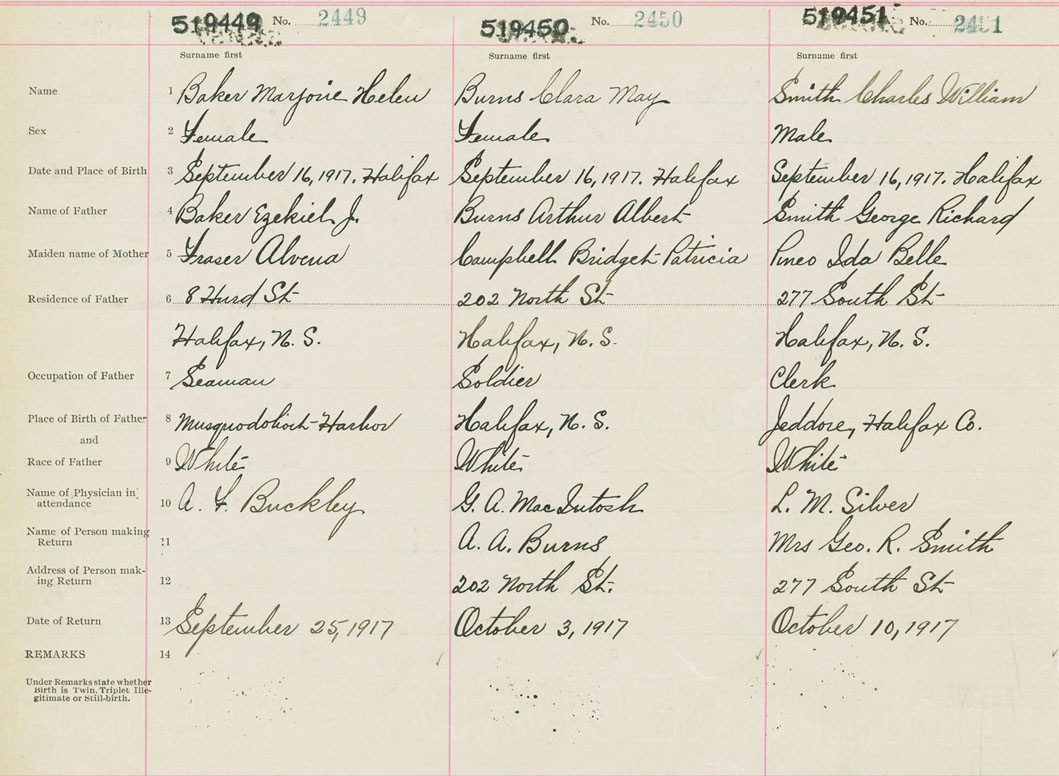 519449 No. 2449 519450 No. 2450 519451 No. 2451
Surname first Surname first Surname first
Name 1 Baker Marjorie Helen Burns Clara May Smith Charles William
Sex 2 Female Female Male
Date and Place of Birth 3 September 16, 1917. Halifax September 16, 1917. Halifax September 16, 1917. Halifax
Name of Father 4 Baker Ezekiel J. Burns Arthur Albert Smith George Richard
Maiden name of Mother 5 Fraser Alvena Campbell Bridget Patricia Pineo Ida Belle
Residence of Father 6 8 Hurd St 202 North St 277 South St
Halifax, N. S. Halifax, N. S. Halifax, N. S.
Occupation of Father 7 Seaman Soldier Clerk
Place of Birth of Father 8 Musquodoboit Harbor Halifax, N. S. Jeddore, Halifax Co.
and
Race of Father 9 White White White
Name of Physician in attendance 10 A. F. Buckley G. A. MacIntosh L. M. Silver
Name of Person making Return 11 A. A. Burns Mrs Geo. R. Smith
Address of Person mak-ing Return 12 202 North St. 277 South St
Date of Return 13 September 25, 1917 October 3, 1917 October 10, 1917
REMARKS 14
Under Remarks state whether
Birth is Twin, Triplet Ille-
gitimate or Still-birth.